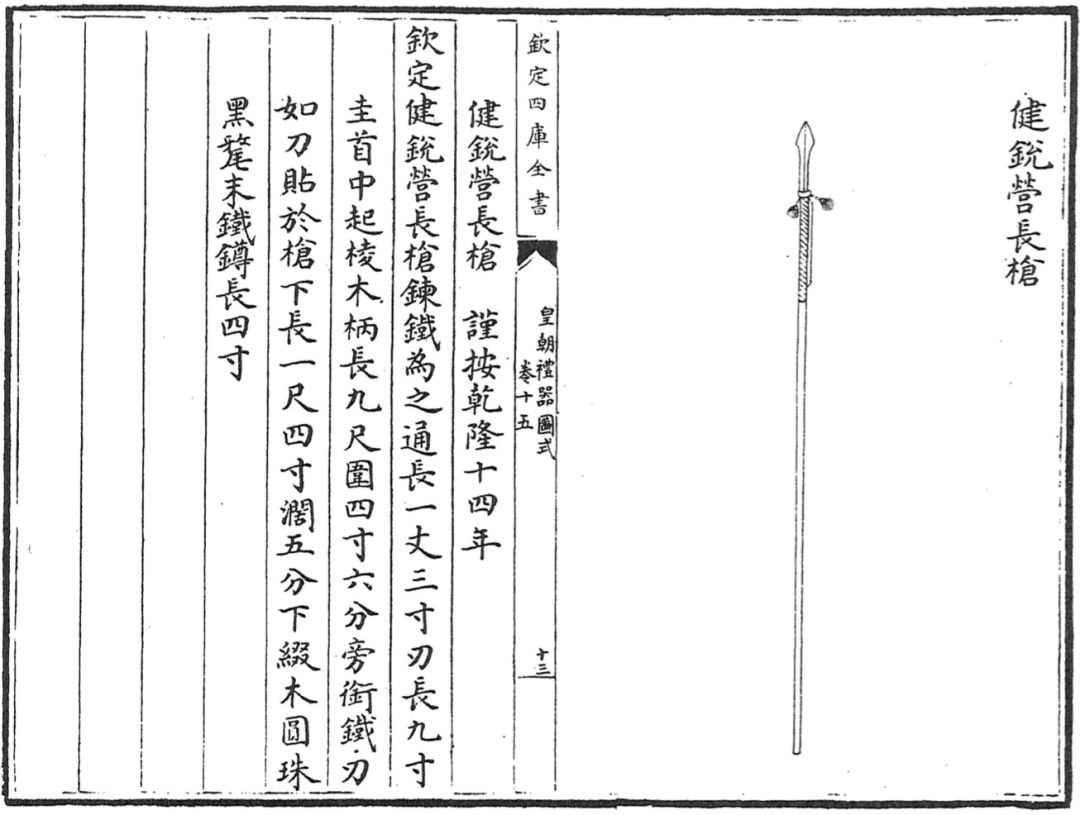 健銳營長槍
欽定四庫全書
皇朝禮器圖式
卷十五
十三
健銳營長槍　謹按乾隆十四年
欽定健銳營長槍鍊鐵為之通長一丈三寸刃長九寸
圭首中起棱木柄長九尺圍四寸六分旁銜鐵刃
如刀貼於槍下長一尺四寸濶五分下綴木圓珠
黑氂末鐵鐏長四寸